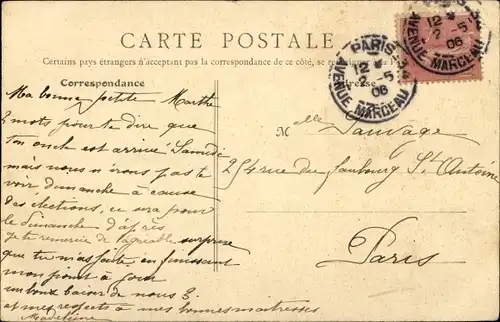 CARTE POSTALE
Certains pays étrangers n'acceptant pas la correspondance de ce côté, se
Correspondance
Adresse
PARIS
12
2 -5
06
AVENUE MARCEAU
12
2 -5
06
AVENUE MARCEAU
Ma bonne petite Marthe
2 mots pour te dire que
ton oncle est arrivé Samedi
mais nous n'irons pas te
voir dimanche à cause
des élections, ce sera pour
le dimanche d'après
Je te remercie de l'agréable surprise
que tu m'as faite en finissant
mon point à jour
un bons baiser de nous 3.
et mes respects à mes bonnes maîtresses
Madeleine
Melle Sauvage
254 rue du faubourg St Antoine
Paris